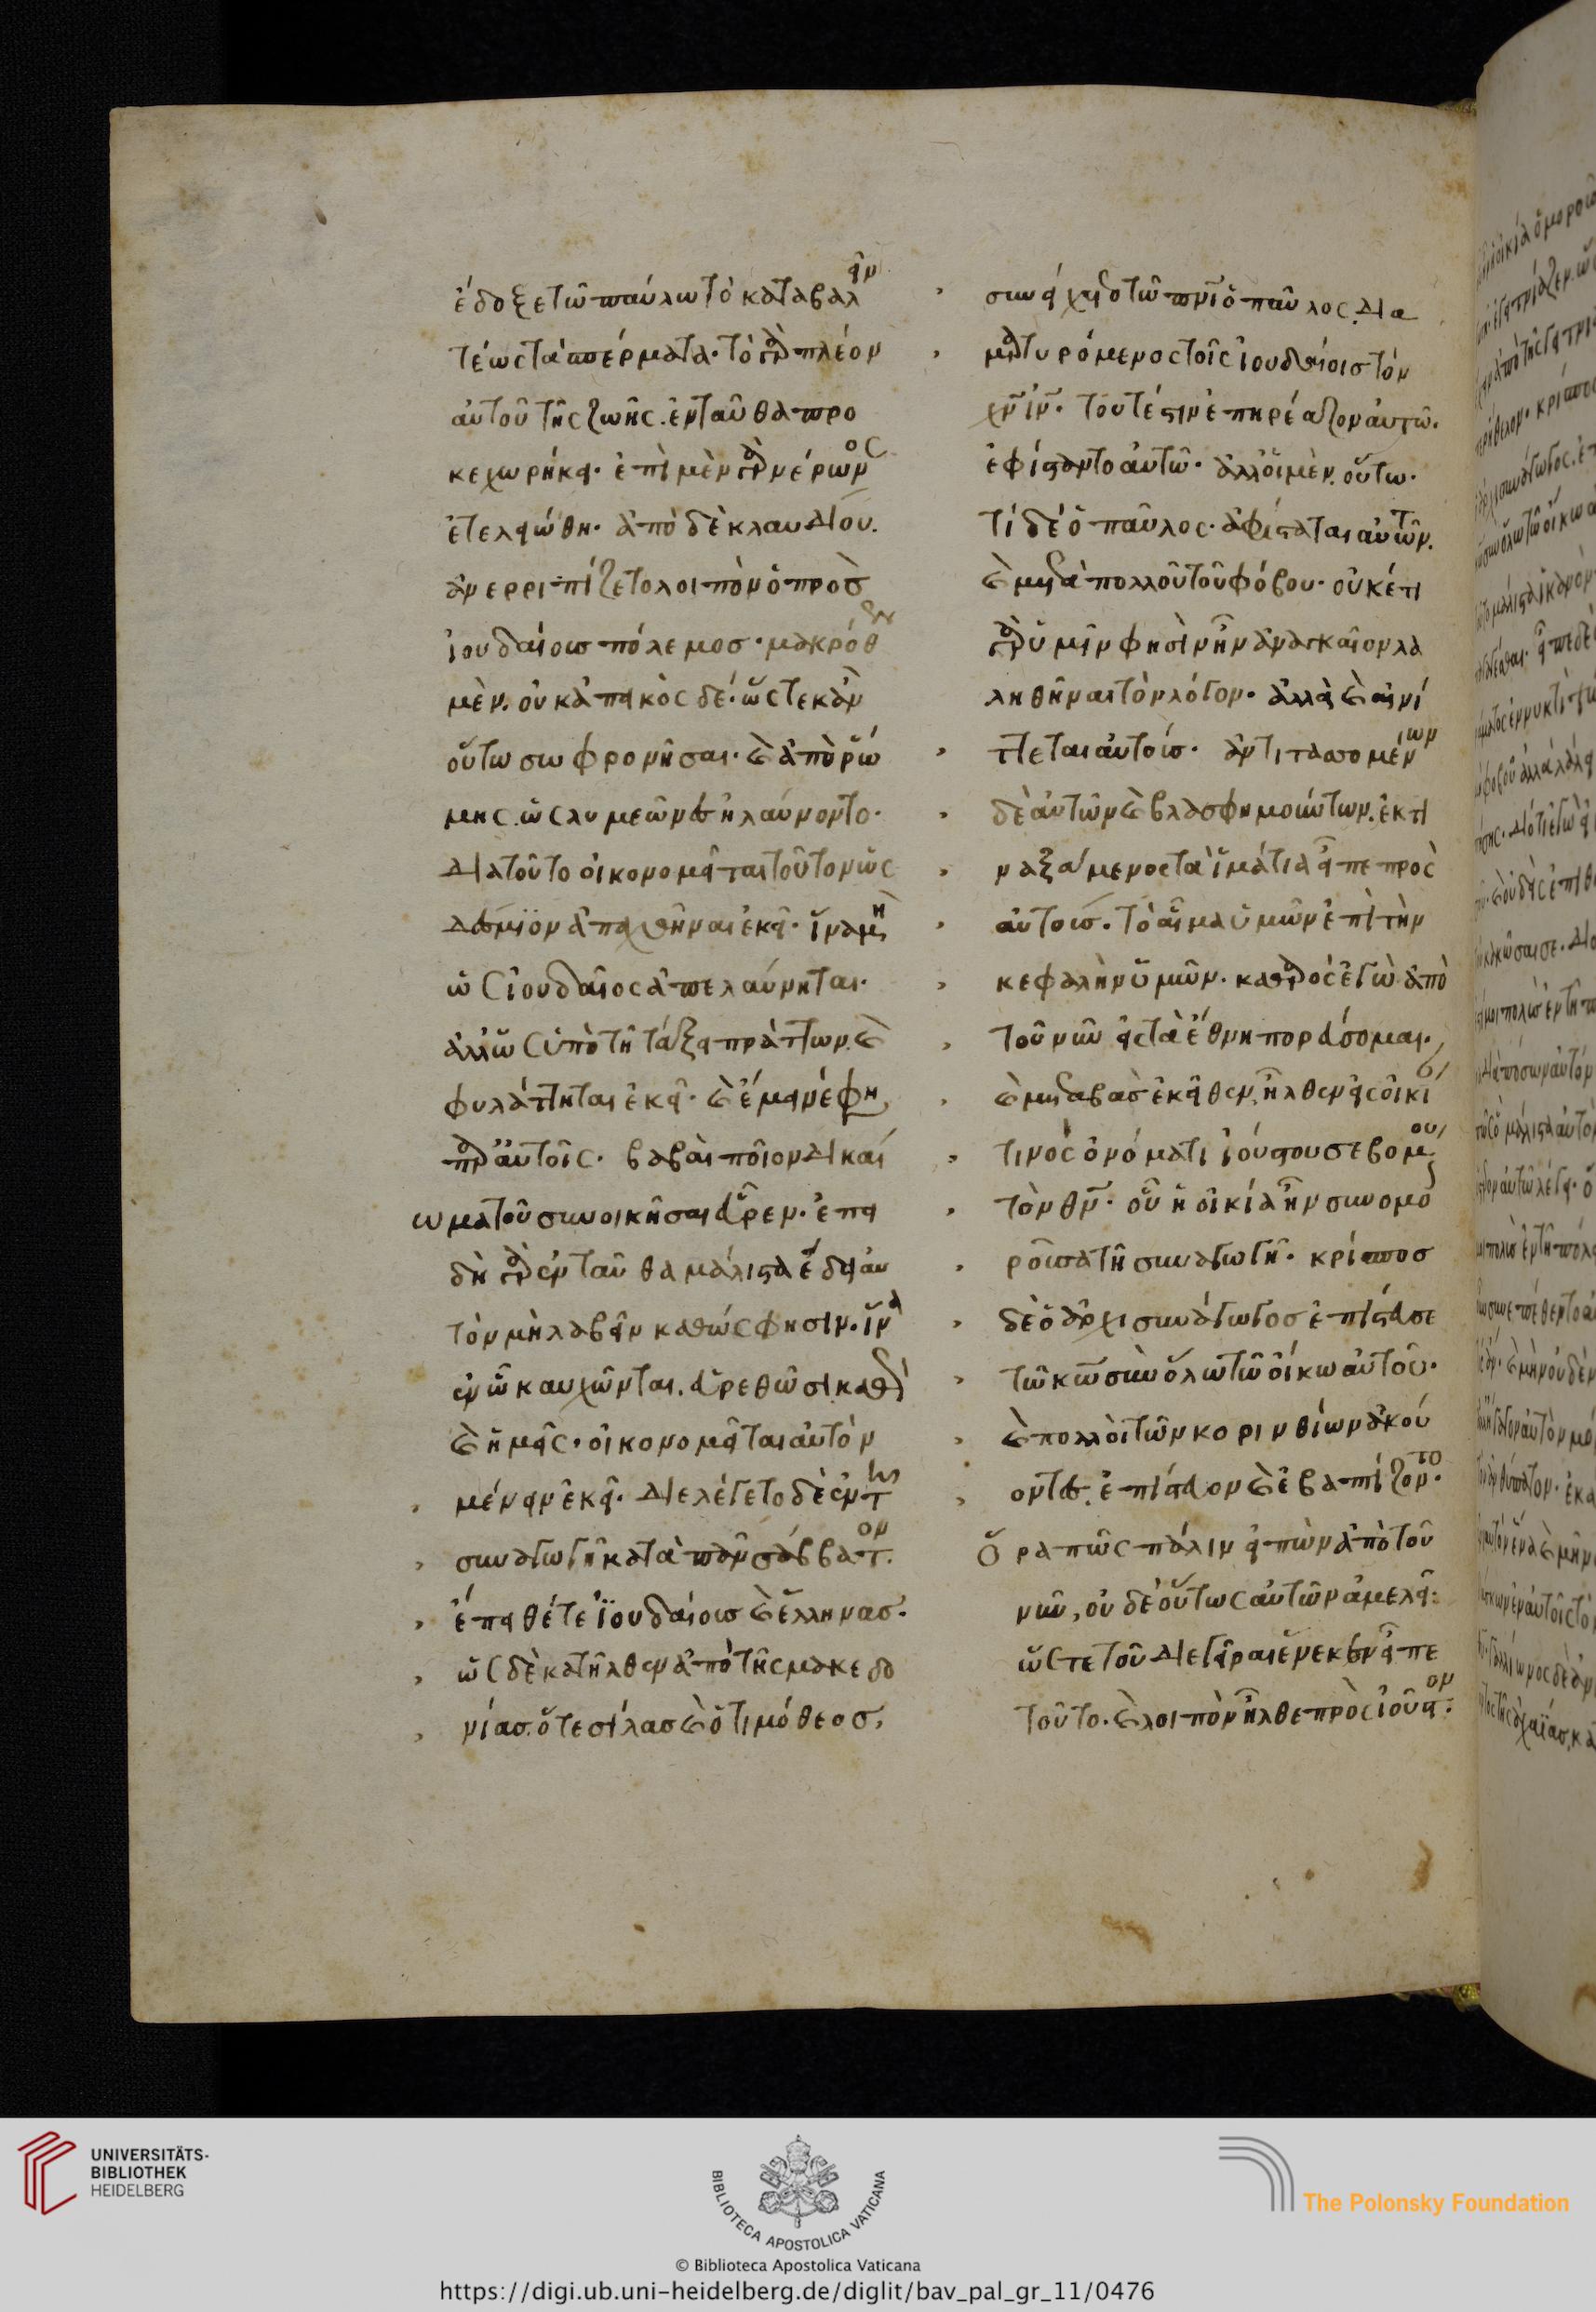 ἔδοξε τῶ παύλω τὸ καταβαλεῖν
τέως τὰ σπέρματα· τὸ γὰρ πλέον
αὐτοῦ τῆς ζωῆς. ἐνταῦθα προ
κεχωρήκει· ἐπὶ μὲν γὰρ νέρωνος
ἐτελειώθη· ἀπὸ δὲ κλαυδίου.
ἀνερριπίζετο λοιπὸν ὁ πρὸς
ἰουδαίοις πόλεμος· μακρόθεν
μὲν. οὐκ ἀπεικὸς δέ· ὥστε κἂν
οὕτω σωφρονῆσαι· καὶ ἀπὸ ῥώ
μης. ὡς λυμεῶνες ἠλαύνοντο·
διατοῦτο οἰκονομεῖται τοῦτον ὡς
δέσμιον ἀπαχθῆναι ἐκεῖ· ἵνα μὴ
ὡς ἰουδαῖος ἀπελαύνηται·
ἀλλ ὡς ὑπὸ τῆ τάξει πράττων. καὶ
φυλάττηται ἐκεῖ· καὶ ἔμεινέ φη
παρ αὐτοῖς· βαβαὶ ποῖον δικαί
ωμα τοῦ συνοικῆσαι εὗρεν· ἐπει
δὴ γὰρ ἐνταῦθα μάλιστα ἔδει αὐ
τὸν μὴ λαβεῖν καθώς φησιν· ἵνα
ἐν ὧ καυχῶνται. εὑρεθῶσι καθὼ
καὶ ἡμεῖς· οἰκονομεῖται αὐτὸν
μένειν ἐκεῖ· διελέγετο δὲ ἐν τῆ
συναγωγῆ κατὰ πᾶν σάββατον.
ἔπειθέ τε ἰουδαίοις καὶ ἕλληνας·
ὡς δὲ κατῆλθεν ἀπὸ τῆς μακεδο
νίας. ὅ τε σίλας καὶ ὁ τιμόθεος,
συνείχετο τῶ πνι ὁ παῦλος. δια
μαρτυρόμενος τοῖς ἰουδαίοις τὸν
χν ιν· τουτέστιν ἐπηρέαζον αὐτῶ.
ἐφίσταντο αὐτῶ· ἀλλ οἱ μὲν. οὕτω·
τί δέ ὁ παῦλος· ἀφίσταται αὐτῶν.
καὶ μετὰ πολλοῦ τοῦ φόβου· οὐκέτι
γὰρ ὑμῖν φησὶν ἦν ἀναγκαῖον λα
ληθῆναι τὸν λόγον· ἀλλὰ καὶ αἰνί
ττεται αὐτοῖς· ἀντιτασσομένων
δὲ αὐτῶν καὶ βλασφημούντων. ἐκτι
ναξάμενος τὰ ἱμάτια εἶπε πρὸς
αὐτοῖς. τὸ αἷμα ὑμῶν ἐπὶ τὴν
κεφαλὴν ὑμῶν. καθαρὸς ἐγὼ ἀπὸ
τοῦ νῦν εἰς τὰ ἔθνη πορεύσομαι.
καὶ μεταβὰς ἐκεῖθεν, ἦλθεν εἰς οἰκί
τινὸς ὀνόματι ἰούστου σεβομένου
τὸν θν· οὗ ἡ οἰκία ἦν συνομο
ροῦσα τῆ συναγωγῆ· κρίσπος
δὲ ὁ ἀρχισυνάγωγος ἐπίστευσε
τῶ κω σὺν ὅλω τῶ οἴκω αὐτοῦ·
καὶ πολλοὶ τῶν κορινθίων ἀκού
οντες. ἐπίστευον καὶ ἐβαπτίζοντο·
Ὅρα πῶς πάλιν εἰπὼν ἀπὸ τοῦ
νῦν, οὐδ οὕτως αὐτῶν ἀμελεῖ:
ὥστε τοῦ διεγεῖραι ἕνεκεν εἶπε
τοῦτο. καὶ λοιπὸν ἦλθε πρὸς ἰοῦστον·
UNIVERSITÄTS-
BIBLIOTHEK
HEIDELBERG
BIBLIOTECA APOSTOLICA VATICANA
The Polonsky Foundation
© Biblioteca Apostolica Vaticana
https://digi.ub.uni-heidelberg.de/diglit/bav_pal_gr_11/0476